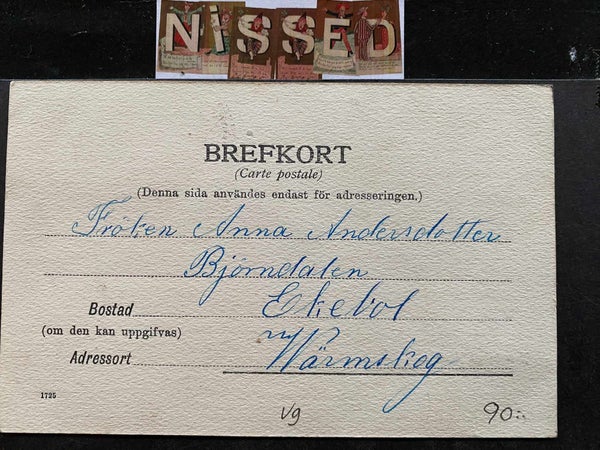 NiSSED
BREFKORT
(Carte postale)
(Denna sida användes endast för adresseringen.)
Fröken Anna Andersdotter
Björndalen
Bostad Ekebol
(om den kan uppgifvas)
Adressort Värmskog
1725
Vg 90:-